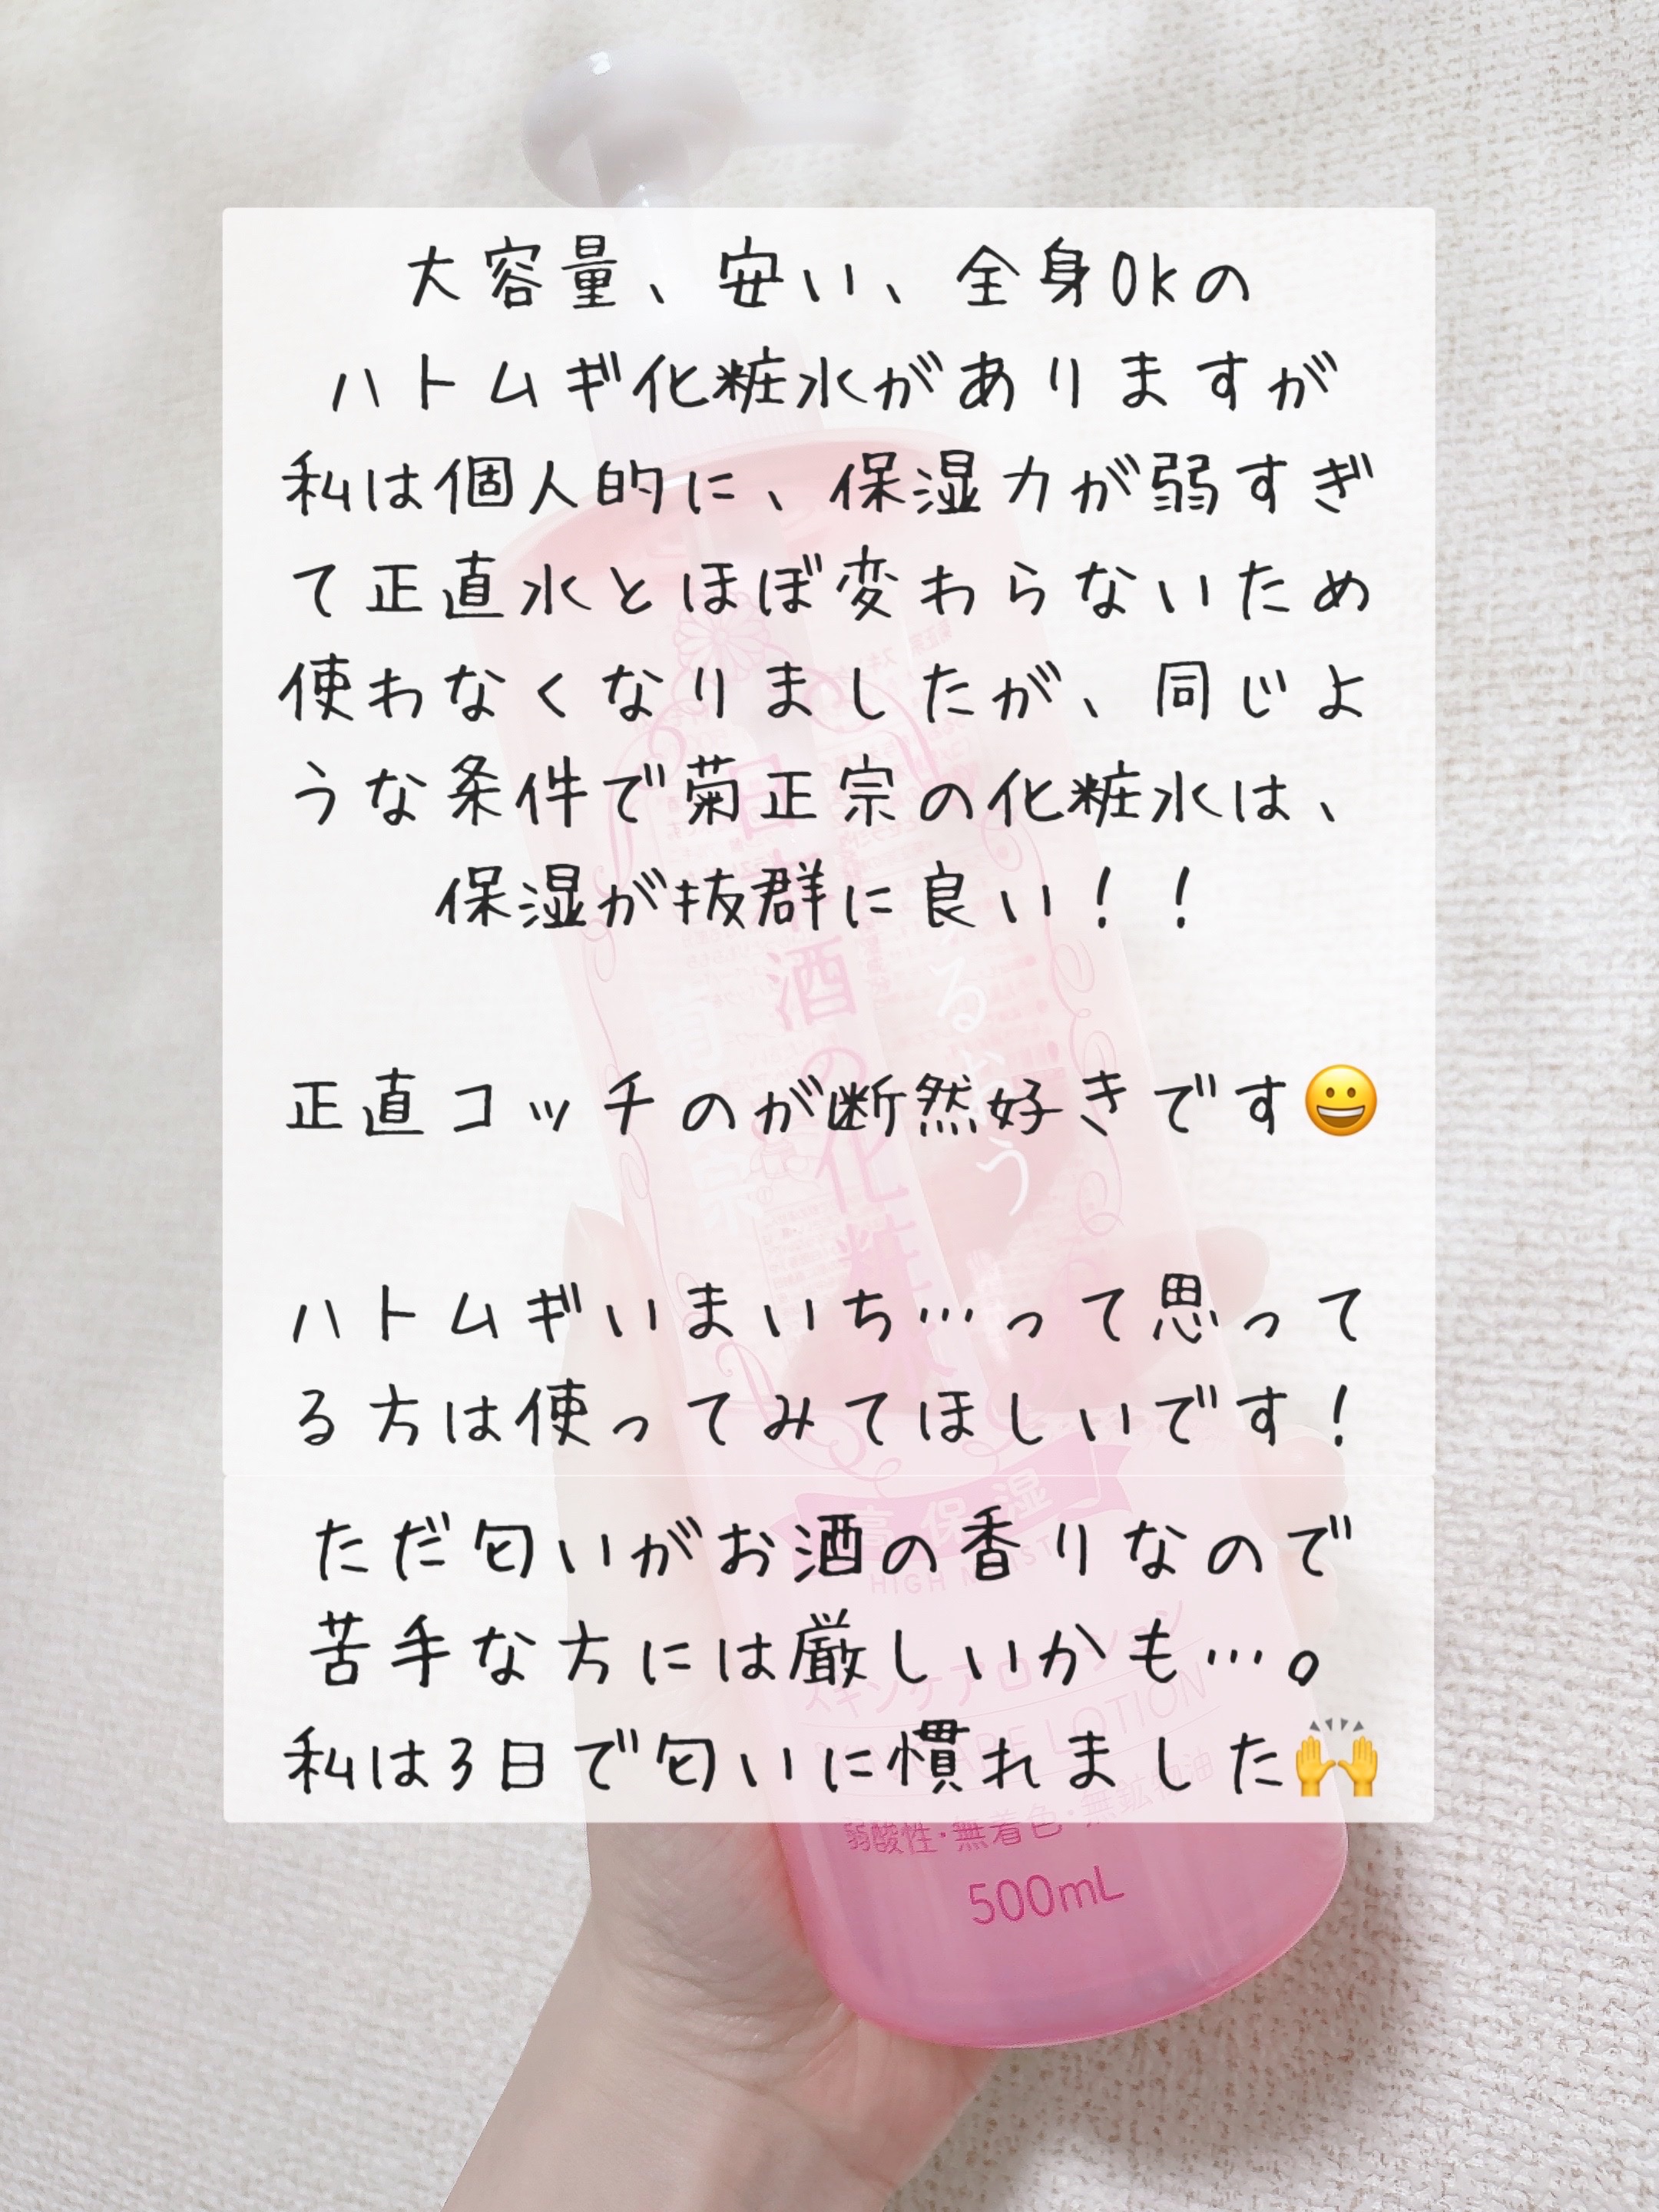 大容量、安い、全身Okの
ハトムギ化粧水がありますが
私は個人的に、保湿力が弱すぎ
て正直水とほぼ変わらないため
使わなくなりましたが、同じよ
うな条件で菊正宗の化粧水は、
保湿が抜群に良い！！
正直コッチのが断然好きです😀
ハトムギいまいち…って思って
る方は使ってみてほしいです！
ただ匂いがお酒の香りなので
苦手な方には厳しいかも…。
私は3日で匂いに慣れました🙌
日本酒の化粧水
高保湿
HIGH MOIST
スキンケアローション
SKIN CARE LOTION
弱酸性・無着色・無鉱物油
500mL